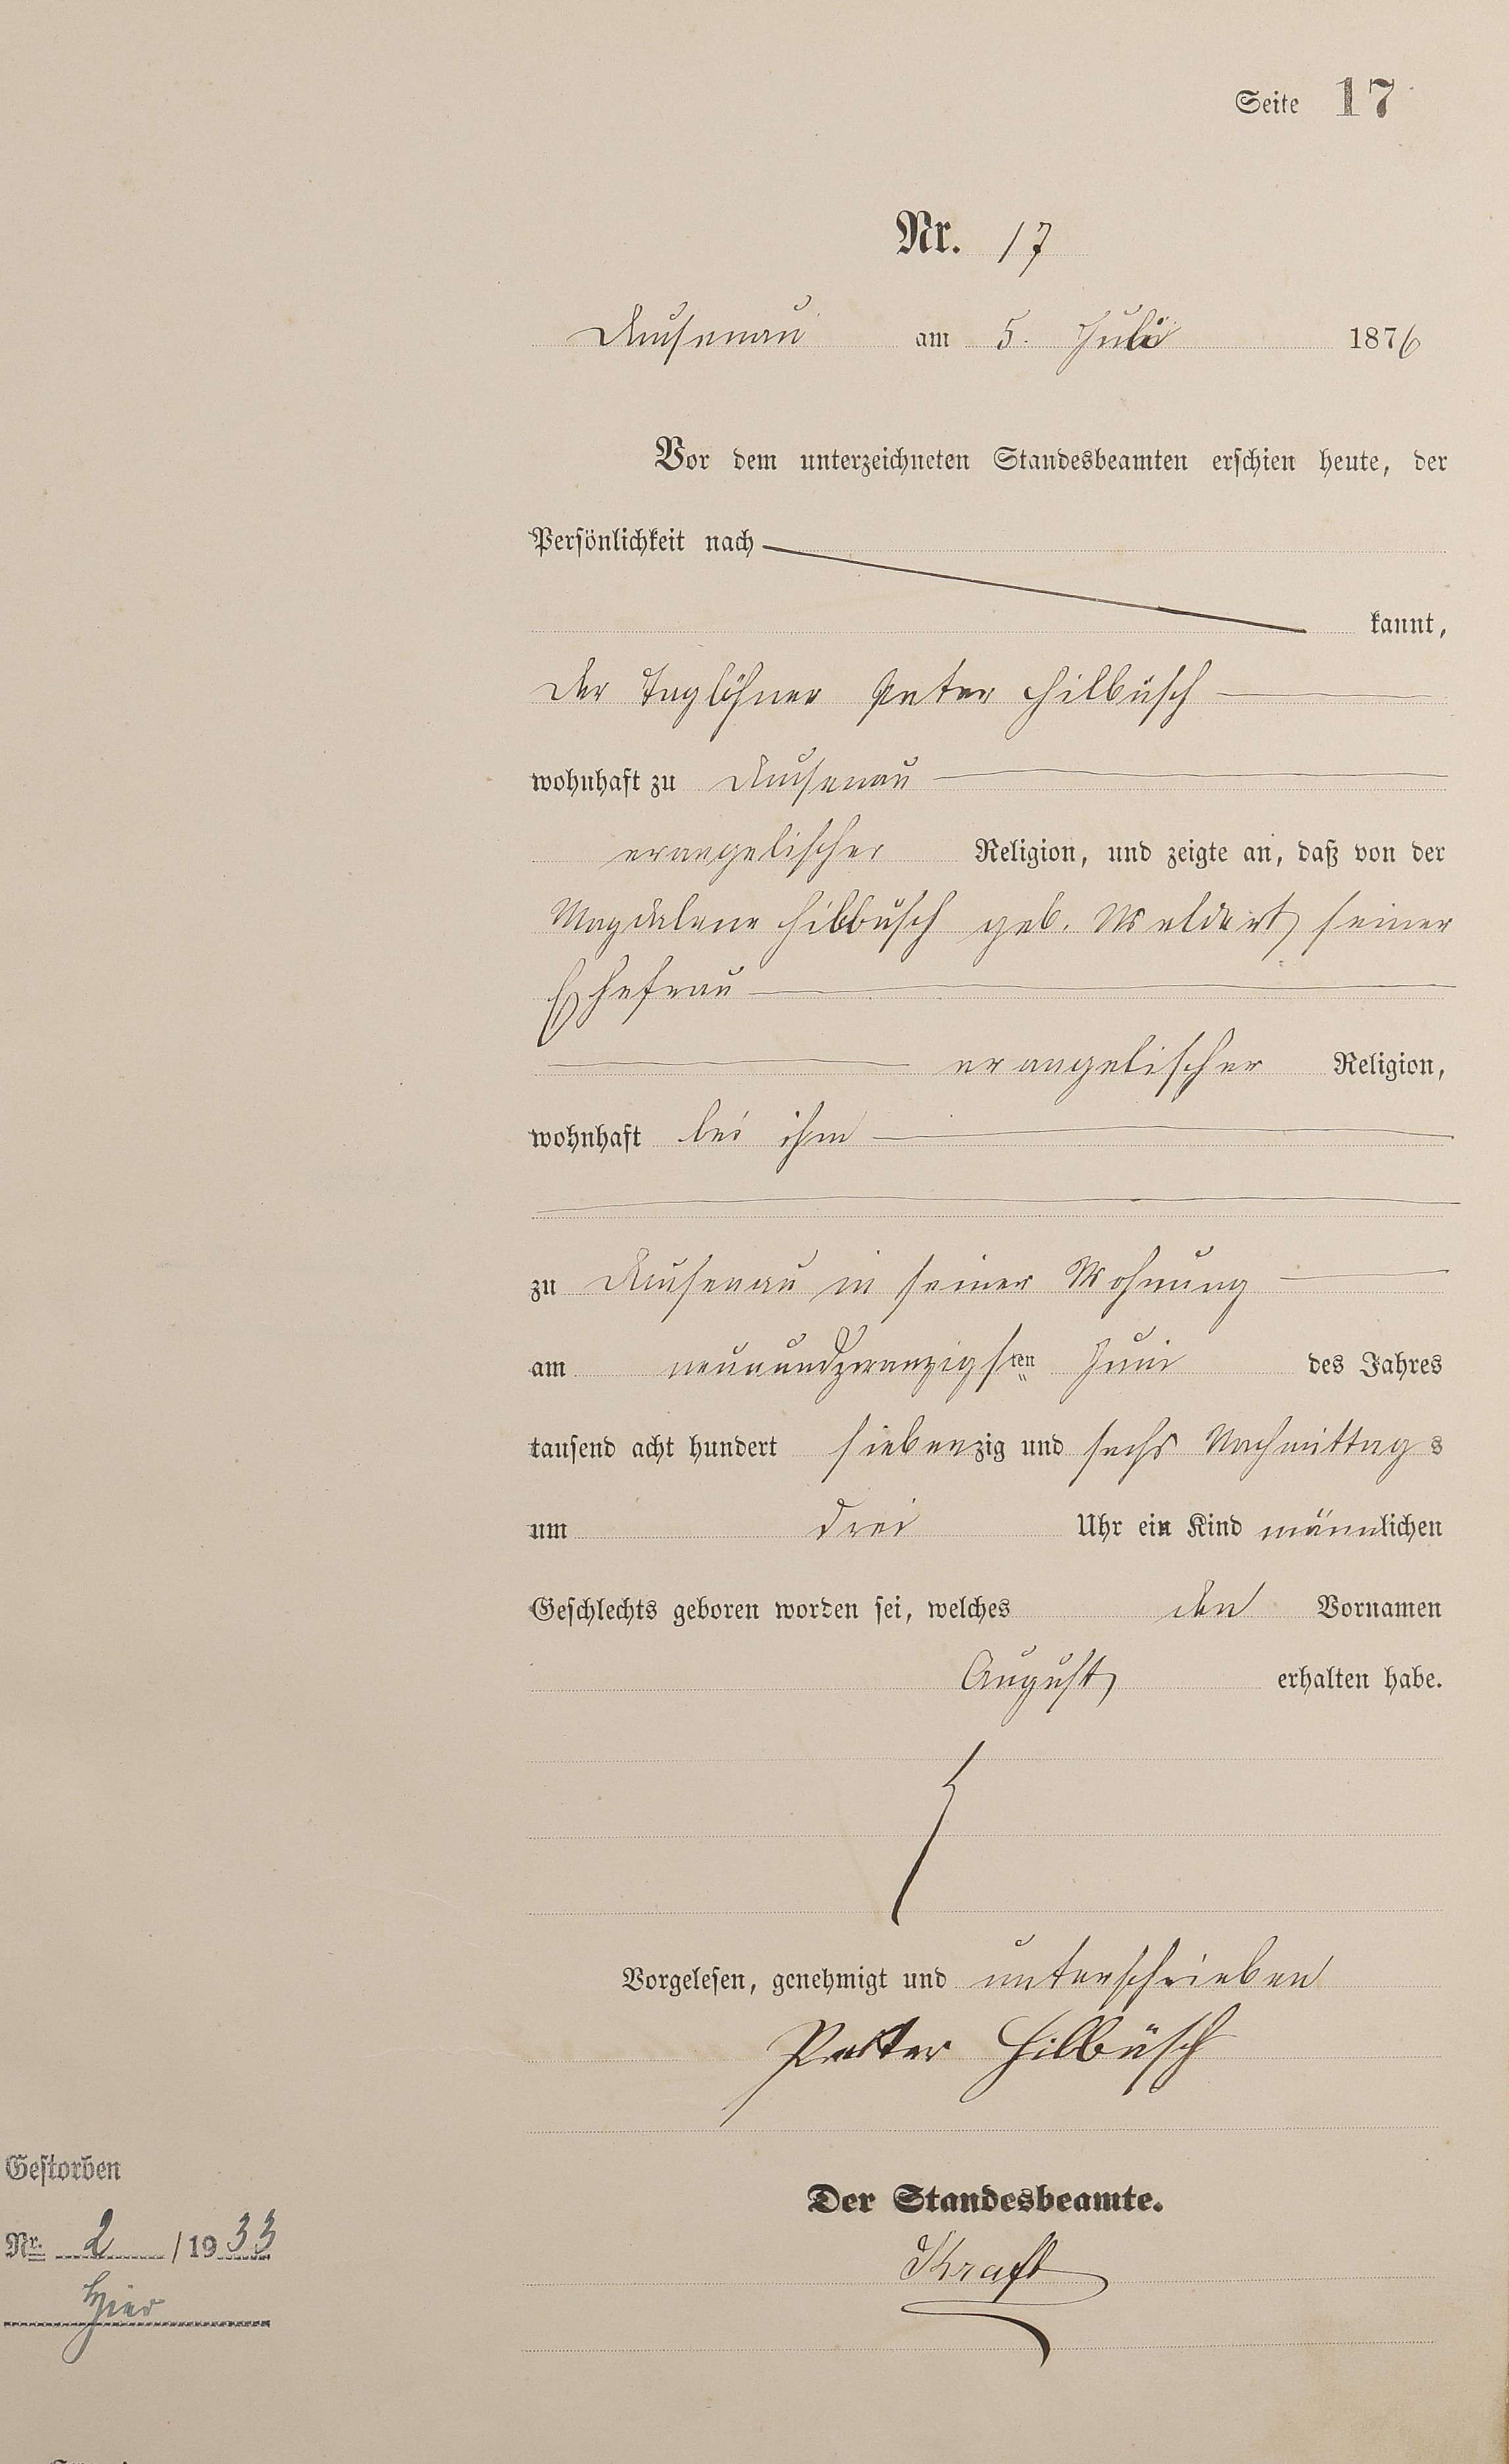 Seite 17
Nr. 17
Dausenau am 5. Juli 1876
Vor dem unterzeichneten Standesbeamten erschien heute, der
Persönlichkeit nach
kannt,
der Taglöhner Peter Hilbüsch
wohnhaft zu Dausenau
evangelischer Religion, und zeigte an, daß von der
Magdalene Hilbüsch geb. Weldert seiner
Ehefrau
evangelischer Religion,
wohnhaft bei ihm
zu Dausenau in seiner Wohnung
am neunundzwanzigsten Juni des Jahres
tausend acht hundert siebenzig und sechs Nachmittags
um drei Uhr ein Kind männlichen
Geschlechts geboren worden sei, welches den Vornamen
August erhalten habe.
Vorgelesen, genehmigt und unterschrieben
Peter Hilbüsch
Gestorben
Nr. 2 /1933
hier
Der Standesbeamte.
Kraft